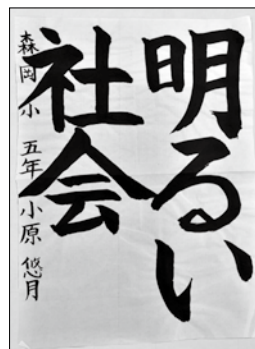 明るい
社会
森岡小 五年 小原悠月